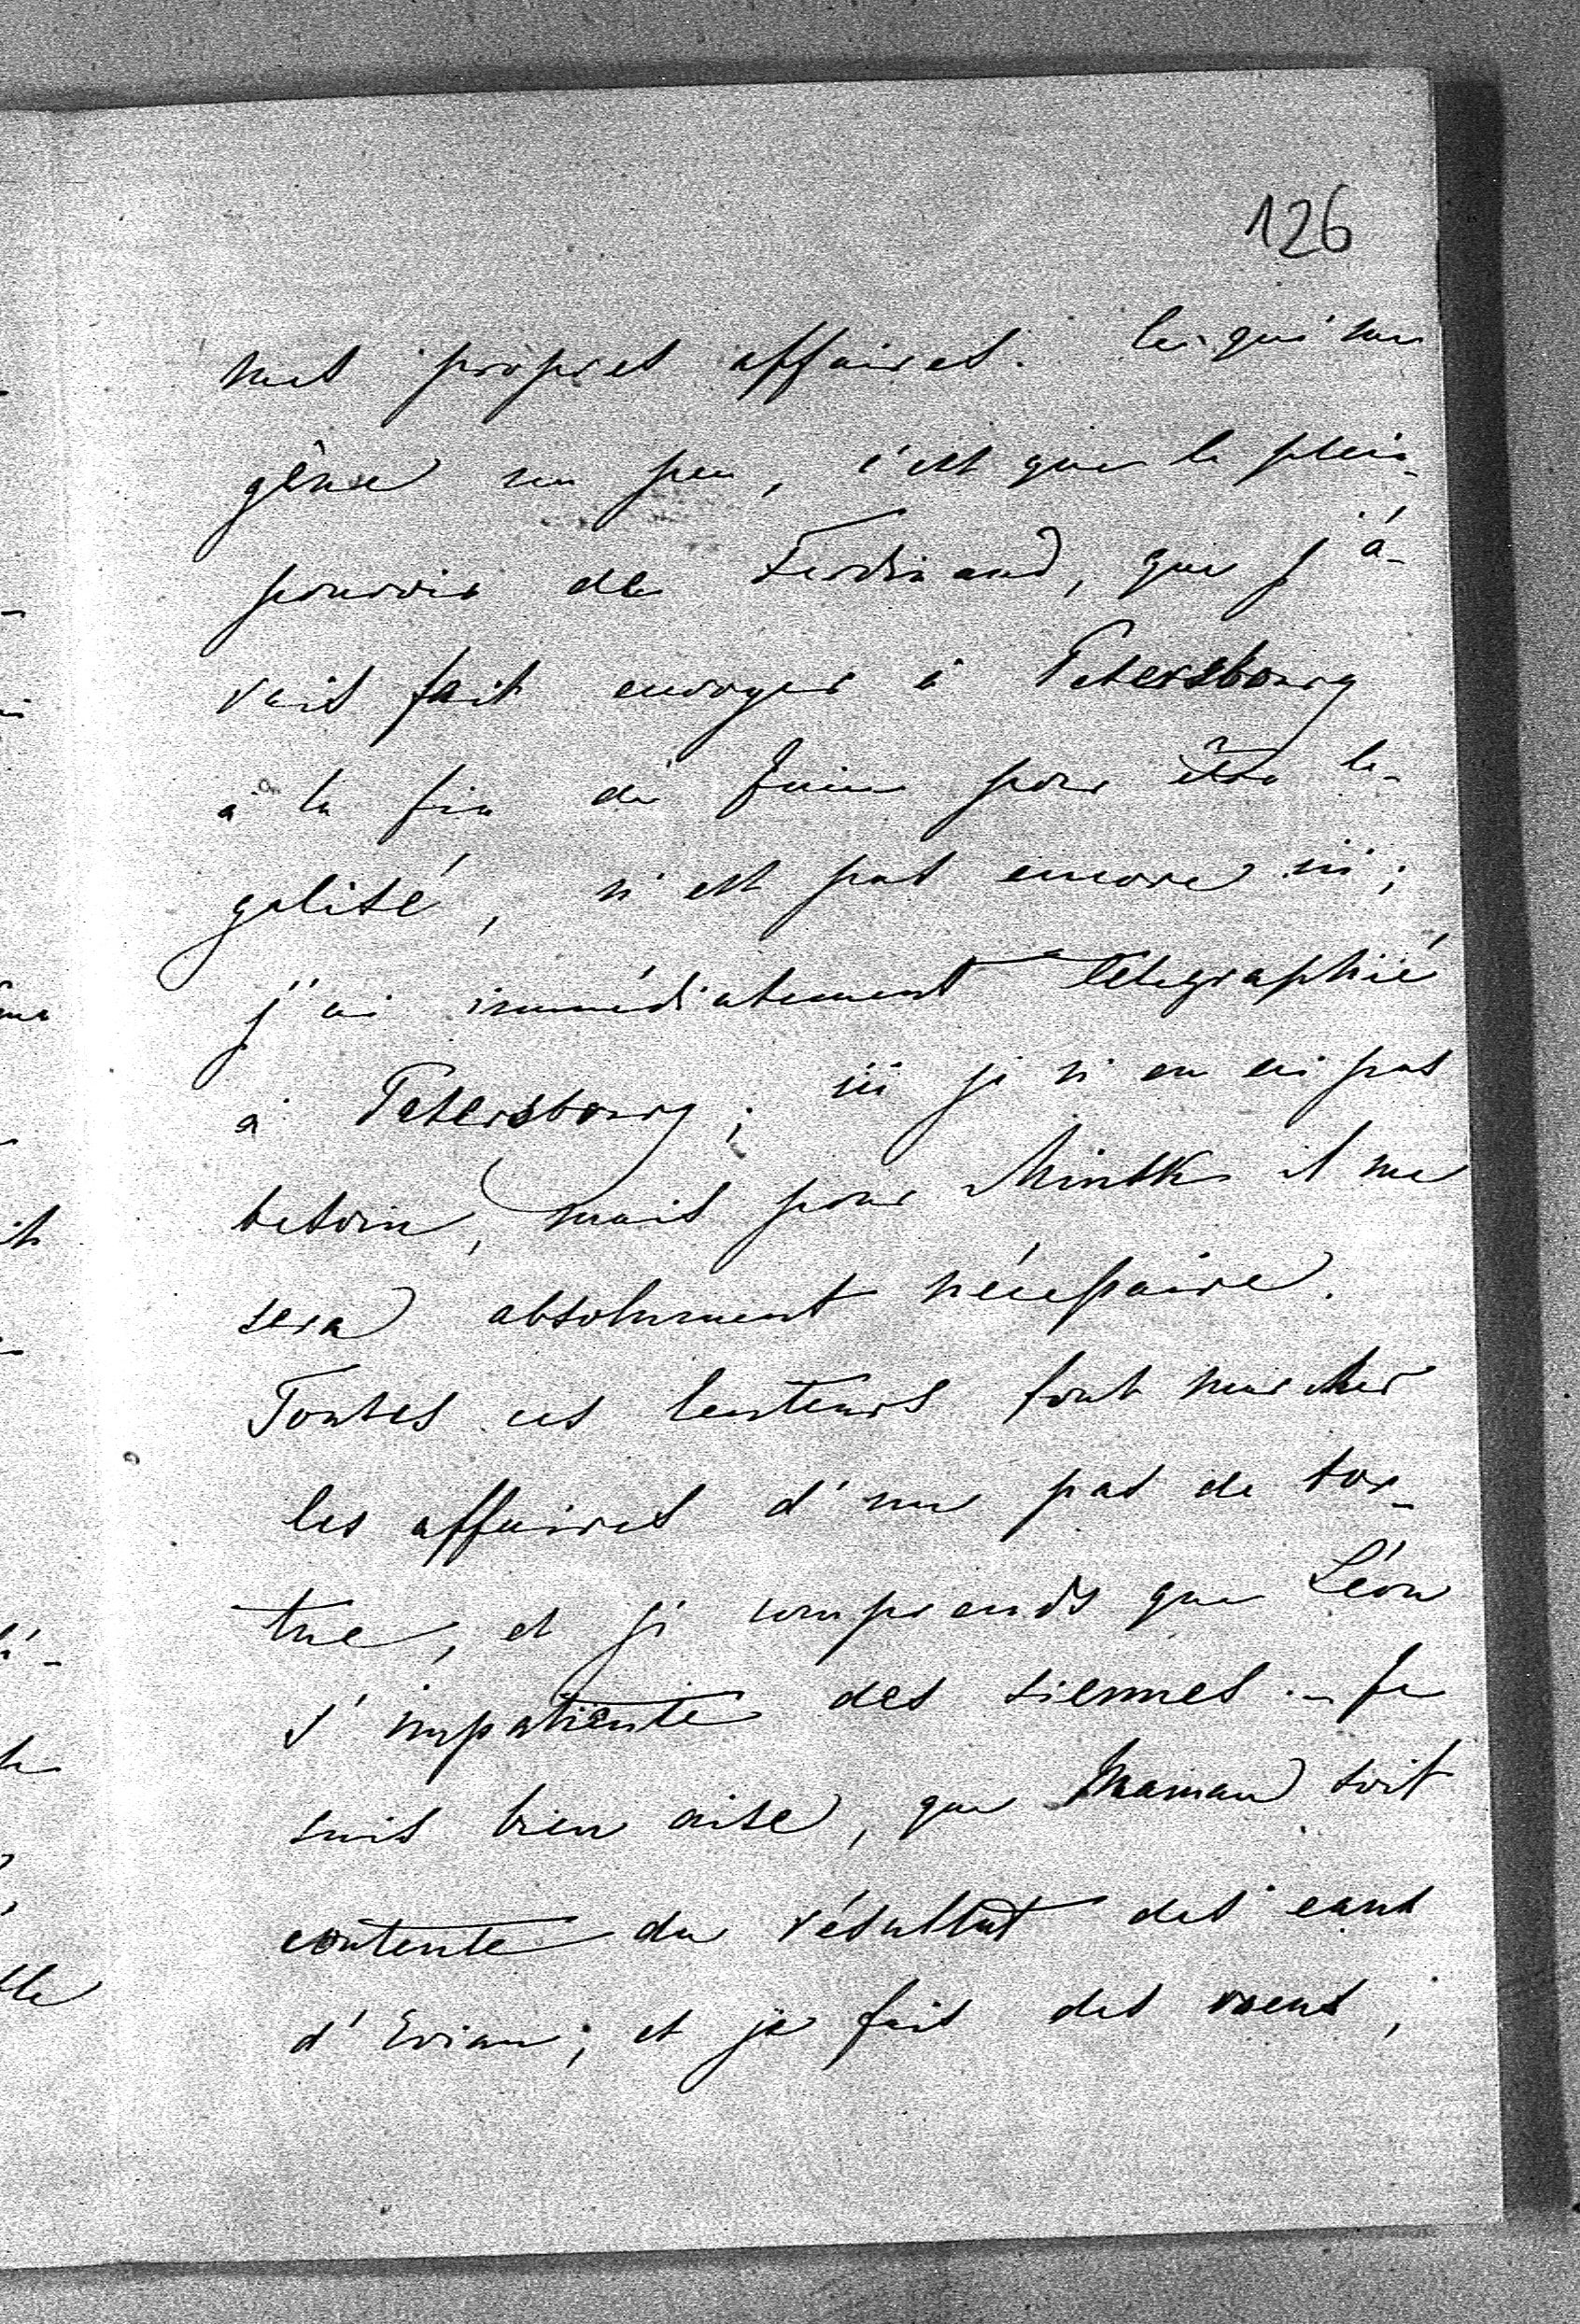 126
mes propres affaires. Ce qui me
gêne un peu, c'est que le plein-
pouvoir de Ferdinand, que j'a-
vais fait envoyer à Petersbourg
à la fin de Juin pour être le-
galisé, n'est pas encore ici;
j'ai immédiatement télégraphié
à Petersbourg; ici je n'en ai pas
besoin, mais pour Minsk il me
sera absolument nécessaire.
Toutes ces lenteurs font marcher
les affaires d'un pas de tor-
tue, et je comprends que Léon
s'impatiente des siennes. - Je
suis bien aise, que Maman soit
contente du résultat des eaux
d'Evian; et je fais des voeux,